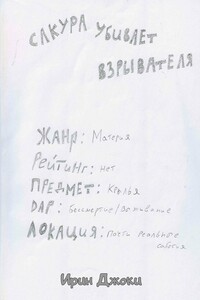 САКУРА УБИВАЕТ
ВЗРЫВАТЕЛЯ
ЖАНР: Материя
РЕЙТИНГ: нет
ПРЕДМЕТ: Крылья
DАР: Бессмертие/
ЛОКАЦИЯ: Почти реальные
события
Ирин Джоки